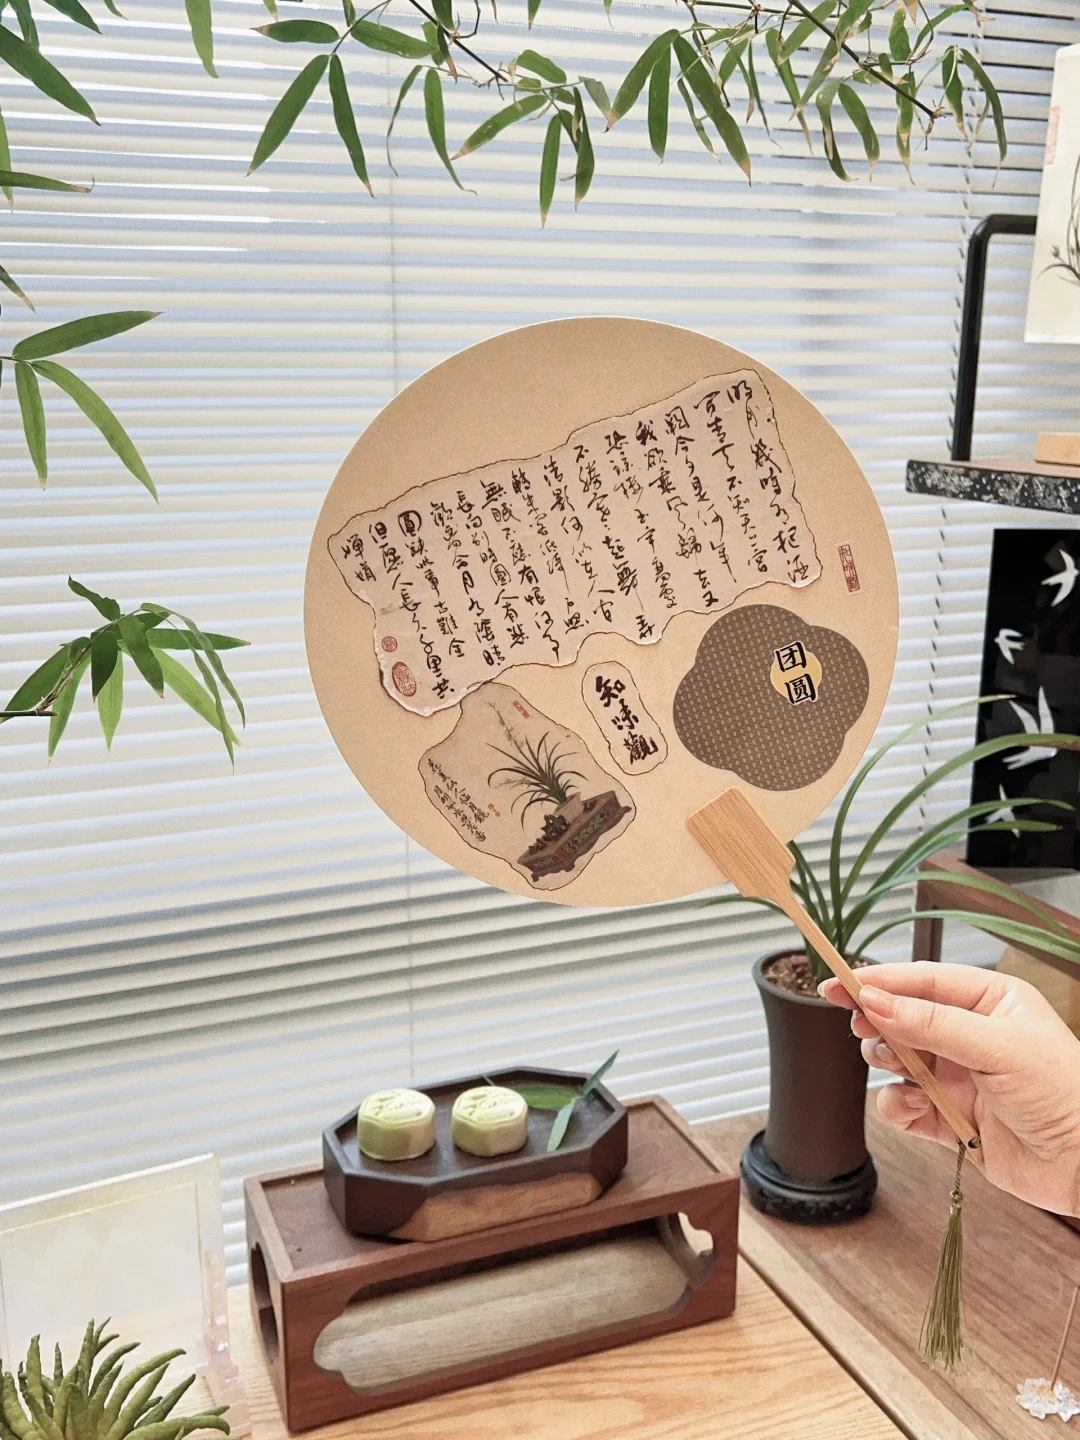 明月幾時有把酒
问青天不知天上宫
闕今夕是何年
我欲乘风歸去又
恐琼楼玉宇高處
不勝寒起舞弄
清影何似在人间
轉朱閣低綺户照
無眠不應有恨何事
長向别時圓人有悲
歡离合月有陰晴
圓缺此事古難全
但願人長久千里共
嬋娟
知味觀
团圆